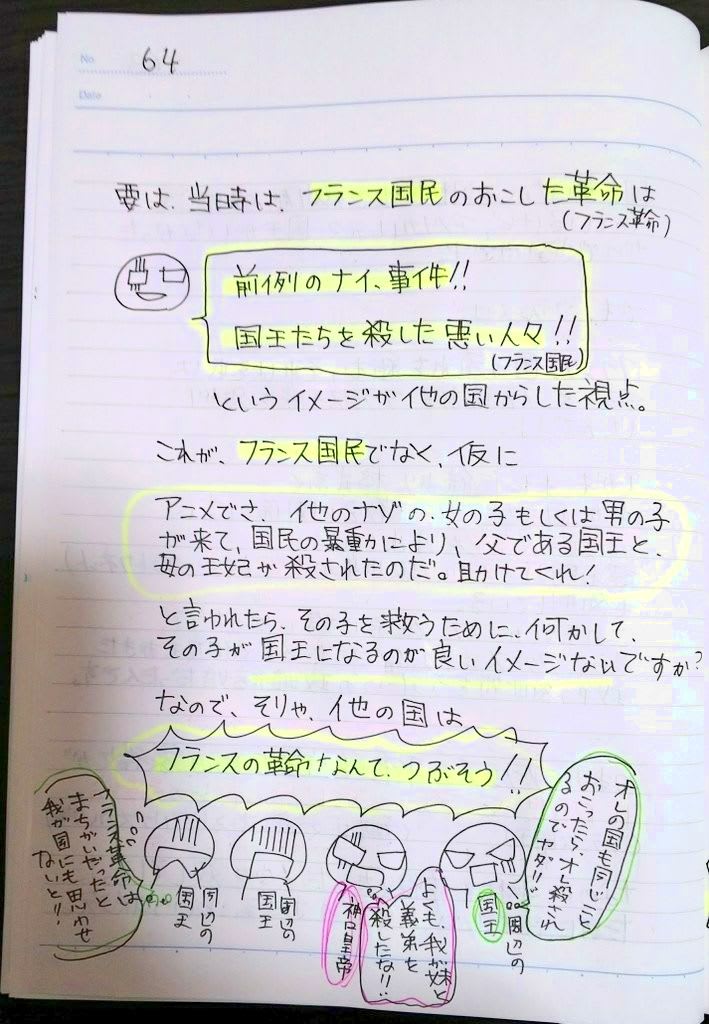 No 64
Date
要は、当時は、フランス国民のおこした革命は
(フランス革命)
前例のナイ、事件!!
国王たちを殺した悪い人々!!
(フランス国民)
というイメージが他の国からした視点。
これが、フランス国民でなく、仮に
アニメでさ、他のナゾの、女の子もしくは男の子
が来て、国民の暴動により、父である国王と、
母の王妃が殺されたのだ。助けてくれ!
と言われたら、その子を救うために、何かして、
その子が国王になるのが良いイメージないですか?
なので、そりゃ、他の国は
フランスの革命なんて、つぶそう!!
オレの国も同じこと
おこったら、オレ殺され
るのでヤダ!!
周辺の
国王
よくも、我が妹と
義弟を
殺したな!!
神ロ皇帝
周辺の
国王
周辺の
国王
フランス革命は
まちがいやったと
我が国にも思わせ
ないと!!